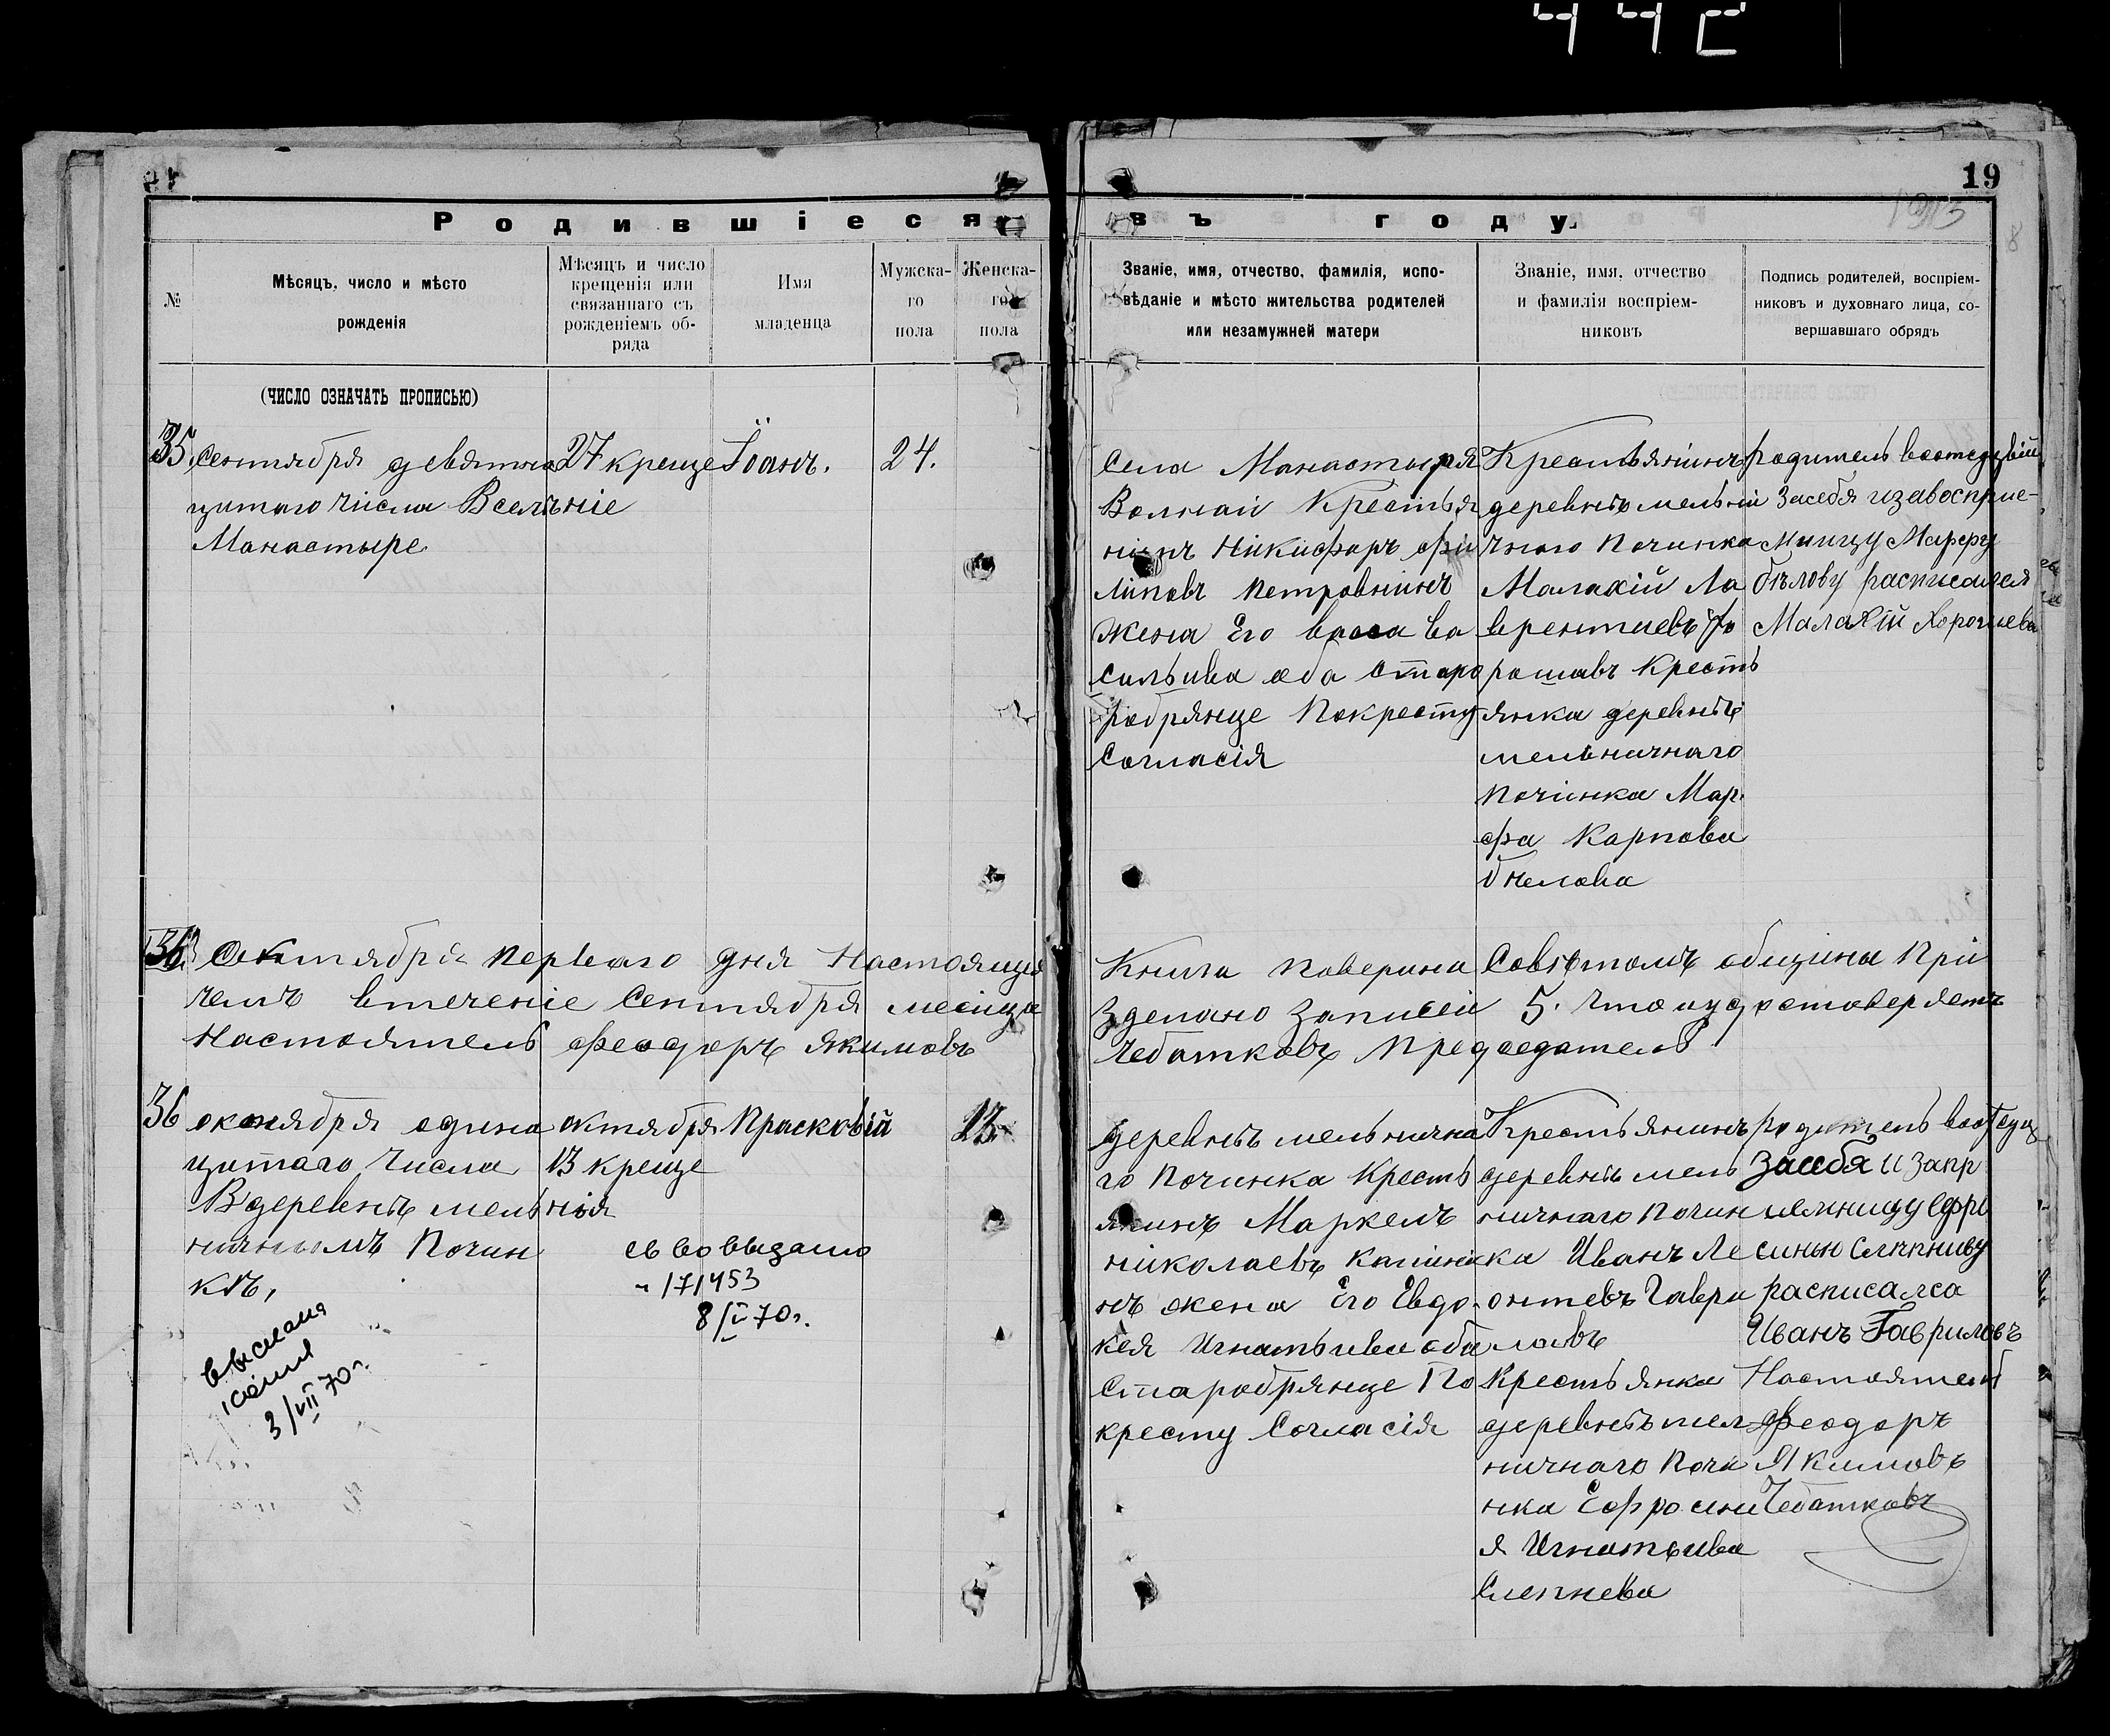 442
19
1913
8
Родившіеся въ году.
№
Мѣсяцъ, число и мѣсто
рожденія
Мѣсяцъ и число
крещенія или
связаннаго съ
рожденіемъ об-
ряда
Имя
младенца
Мужска-
го
пола
Женска-
го
пола
Званіе, имя, отчество, фамилія, испо-
вѣданіе и мѣсто жительства родителей
или незамужней матери
Званіе, имя, отчество
и фамилія воспріем-
никовъ
Подпись родителей, воспріем-
никовъ и духовнаго лица, со-
вершавшаго обрядъ
(ЧИСЛО ОЗНАЧАТЬ ПРОПИСЬЮ)
35. Сентября девятна
цатаго числа Вселѣ
Манастыре
27 креще
ніе
Їоанъ.
24.
Села Манастыря
Волнай Крестья
нинъ Никифоръ фи
липовъ Петровнинъ
жена Его васа ва
сильива оба старо
робрянце Покресту
Согласія
Крестьянинъ
деревнѣ мельни
чного Починка
Малахій Ла
врентиевъ Хо
рошавъ Кресть
янка деревнѣ
мельничнаго
Починка Мар.
фа Карпова
Бѣлова
родитель
засебя изавосприе-
мницу Марфу
бѣлову расписался
Малахій Хорошевъ
36. Октября перваго дня Настояще
чемъ втеченіе Сентября месица
Настоятель феодоръ Якимовъ
Книга поверина Совѣтомъ общины При
Зделано записеи 5. что иудостоверяетъ
Чебатковъ Председатель
36 октября одина
цатаго числа
Вдеревнѣ мель
ничномъ Почин
кѣ,
октября
13 креще
нія
Прасковій
13
св во выдано
171453
8/V 70г.
выслана
копия
3/VII 70г.
деревнѣ мельнична
го Починка Кресть
янинъ Маркелъ
николаевъ
нъ жена Его Евдо.
кея Игнатьива оба
Старобрянце По
кресту Согласія
Крестьянинъ
деревнѣ мель
ничнаго почин
ка Иванъ Ле
онтевъ Гаври
ловъ
Крестьянка
деревнѣ мел
ничнаго Почи
нка Ефросини
я Игнатьива
Слепнева
родитель
засебя и запр
иемницу ефро
синью Слѣпниву
расписалса
Иванъ Гавриловъ
Настоятель
Феодоръ
Якимовъ
Чебатковъ